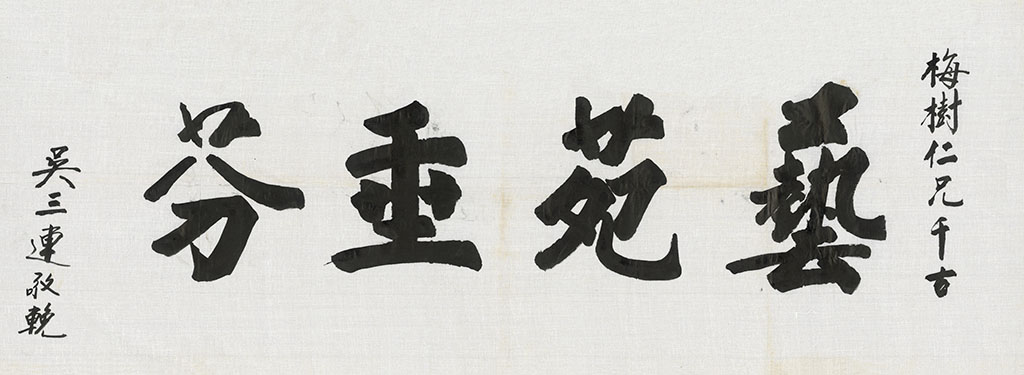 梅樹仁兄千古
藝苑垂芬
吳三連敬輓